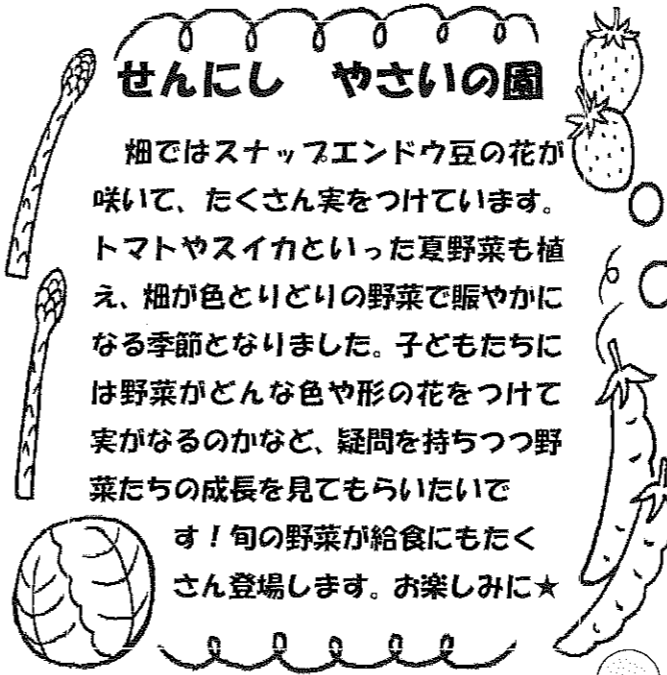 せんにし　やさいの園
畑ではスナップエンドウ豆の花が
咲いて、たくさん実をつけています。
トマトやスイカといった夏野菜も植
え、畑が色とりどりの野菜で賑やかに
なる季節となりました。子どもたちに
は野菜がどんな色や形の花をつけて
実がなるのかなど、疑問を持ちつつ野
菜たちの成長を見てもらいたいで
す！旬の野菜が給食にもたく
さん登場します。お楽しみに★